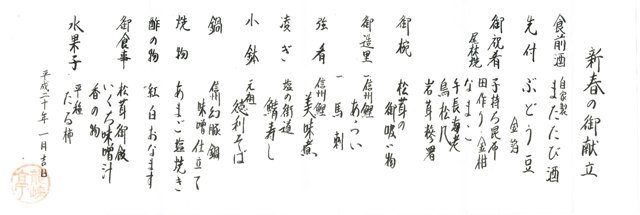 新春の御献立
食前酒 自家製 またたび酒
先付 ぶどう豆
金箔
御祝肴 子持ち昆布
田作り 金柑
なまこ
手長海老
鳥松風
岩茸 椊薯
御椀 松茸の
御吸い物
御造里 信州鯉 あらい
一 馬刺
強肴 信州鯉 美味煮
凌ぎ 塩の街道 鯖寿し
小鉢 元祖 徳利そば
鍋 信州幻豚鍋
味噌仕立て
焼物 あまご塩焼き
酢の物 紅白おなます
御食事 松茸御飯
いくち味噌汁
香の物
水果子 平種 たる柿
平成二十年一月吉日